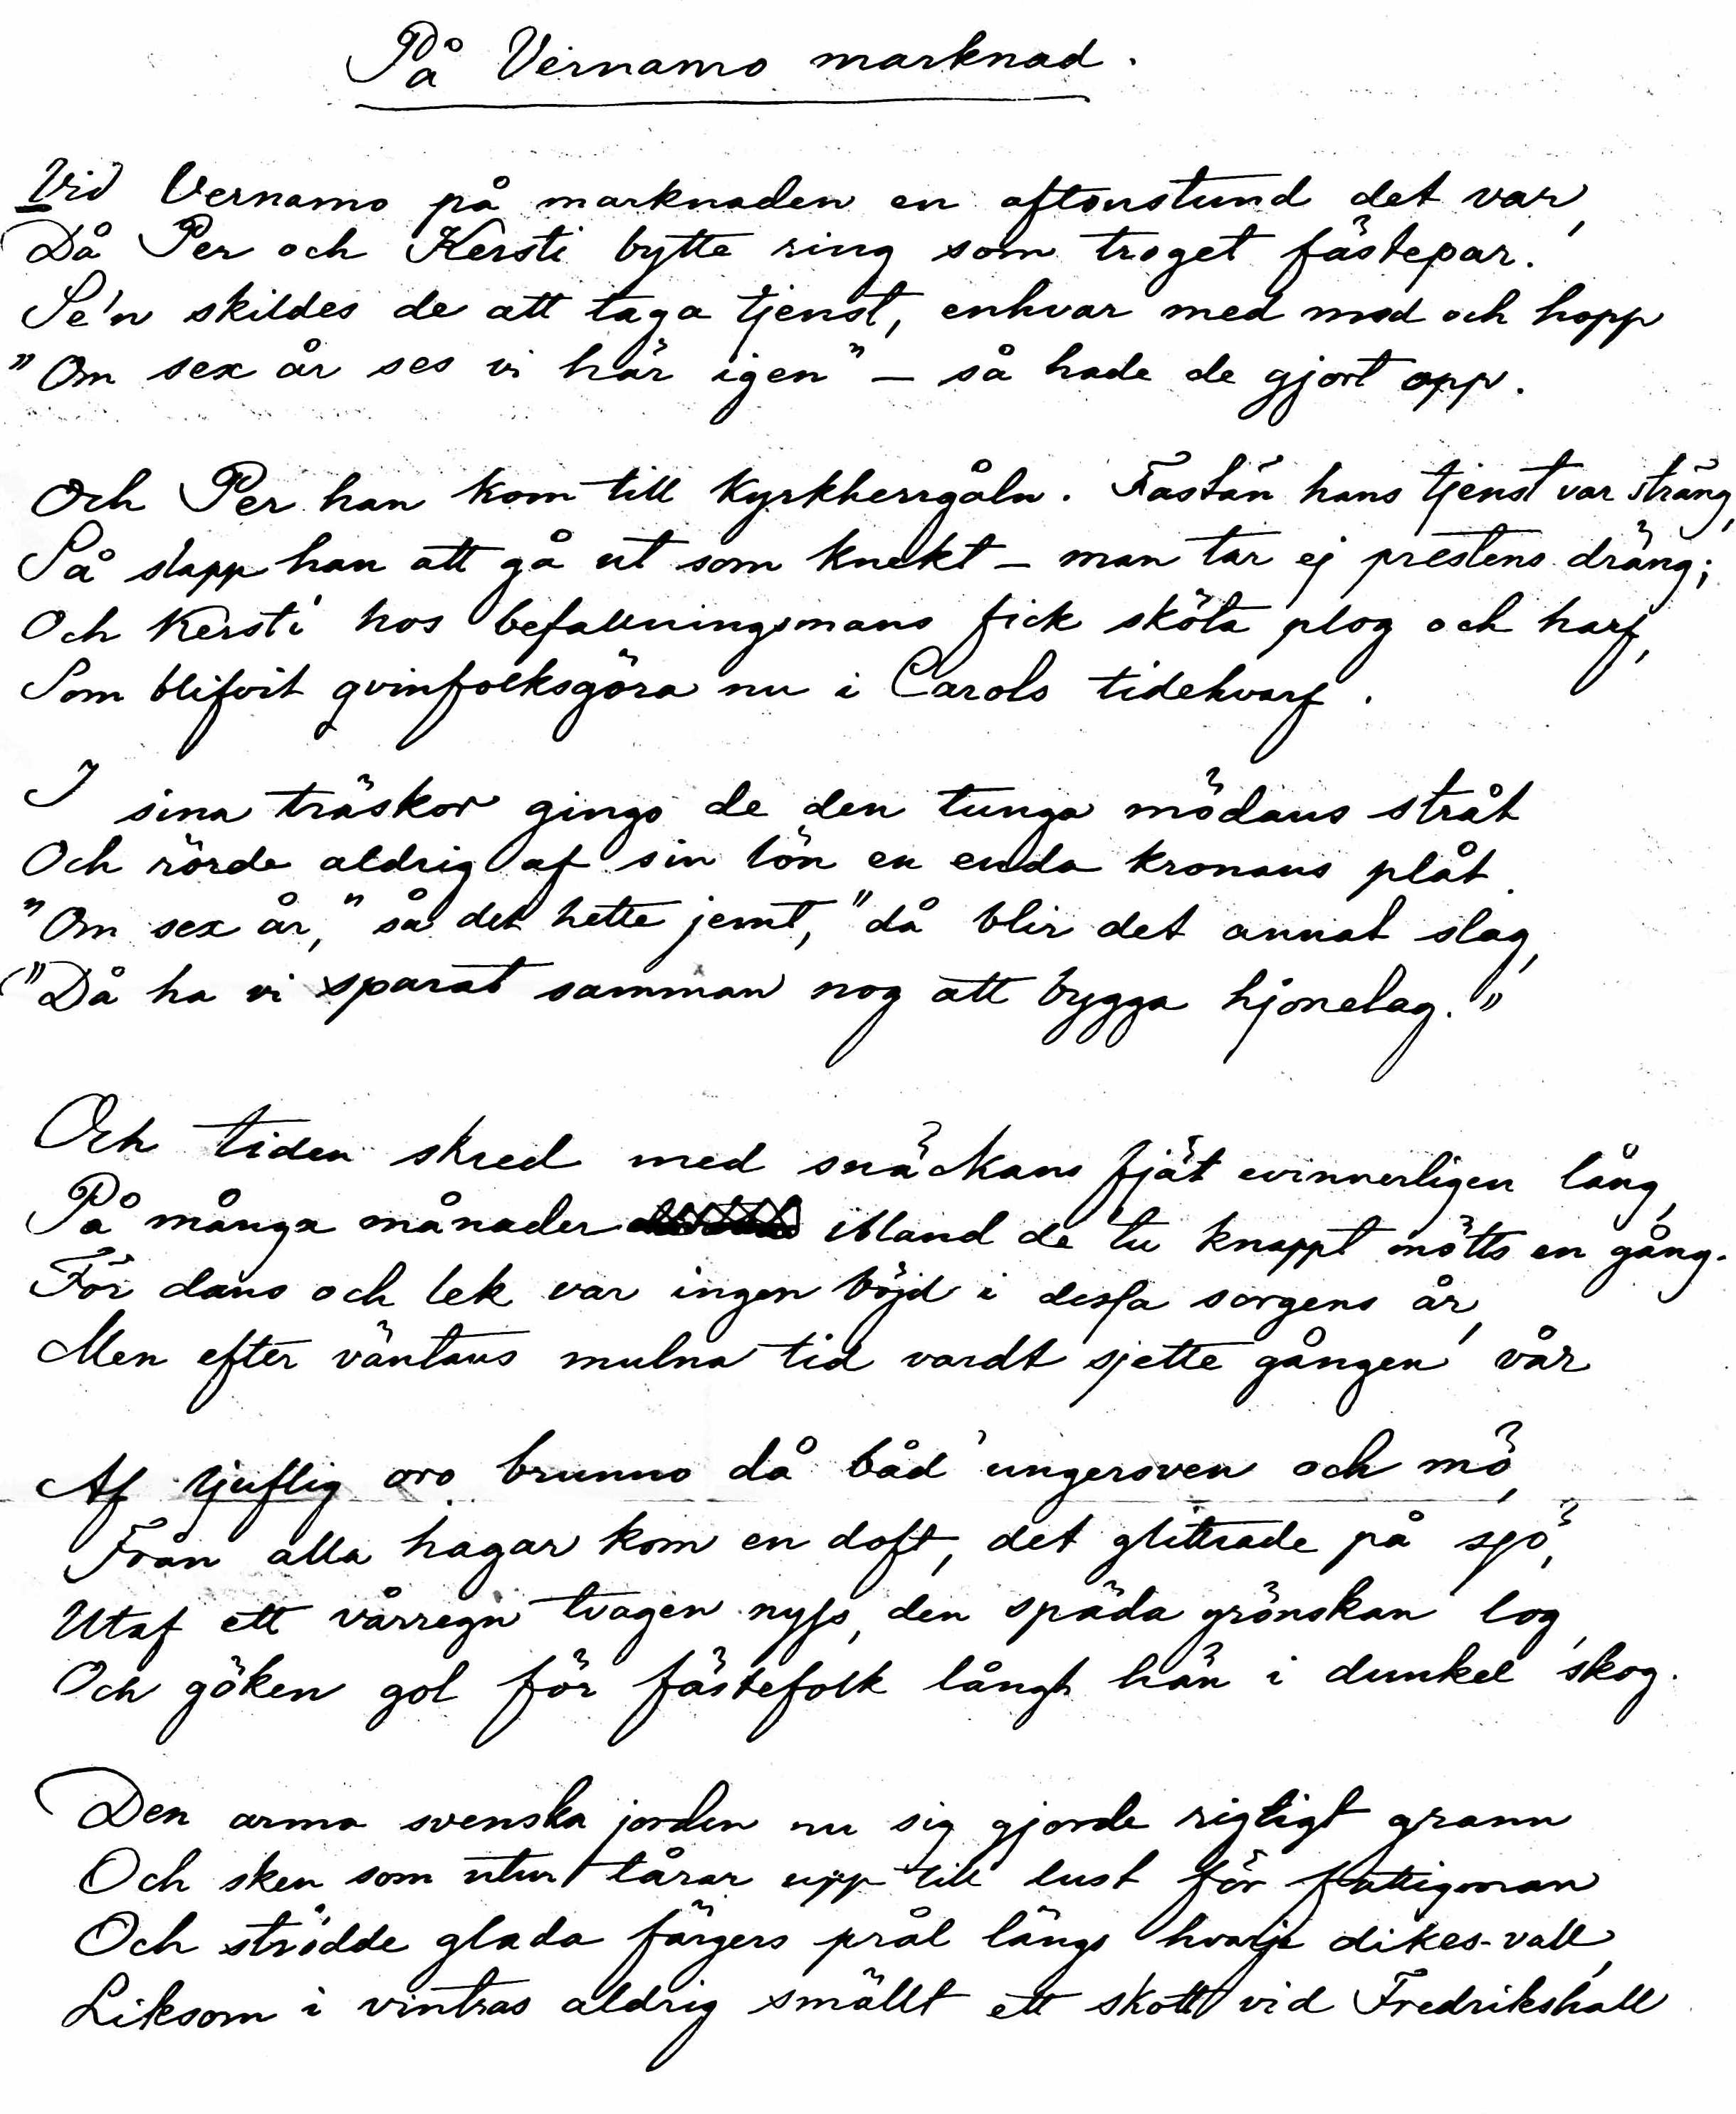 På Vernamo marknad.
Vid Vernamo på marknaden en aftonstund det var,
Då Per och Kersti bytte ring som troget fästepar.
Se'n skildes de att taga tjenst, enhvar med mod och hopp
"Om sex år ses vi här igen" – så hade de gjort opp.
Och Per han kom till Kyrkherrgåln. Fastän hans tjenst var sträng,
Så slapp han att gå ut som knekt – man tar ej prestens dräng;
Och Kersti hos befallningsmans fick sköta plog och harf,
Som blifvit qvinfolksgöra nu i Carols tidehvarf.
I sina träskor gingo de den tunga mödans stråt
Och rörde aldrig af sin lön en enda kronans plåt.
"Om sex år," så det hette jemt, "då blir det annat slag,
"Då ha vi sparat samman nog att bygga hjonelag."
Och tiden skred med snäckans fjät evinnerligen lång,
På många månader ibland de tu knappt mötts en gång.
För dans och lek var ingen böjd i dessa sorgens år,
Men efter väntans mulna tid vardt sjette gången vår
Af ljuflig oro brunno då båd' ungersven och mö,
Från alla hagar kom en doft, det glittrade på sjö,
Utaf ett vårregn tvagen nyss, den späda grönskan log,
Och göken gol för fästefolk långt hän i dunkel skog.
Den arma svenska jorden nu sig gjorde rigtigt grann
Och sken som utur tårar upp till lust för fattigman
Och strödde glada färgers prål längs hvarje dikes-vall,
Liksom i vintras aldrig smällt ett skott vid Fredrikshall